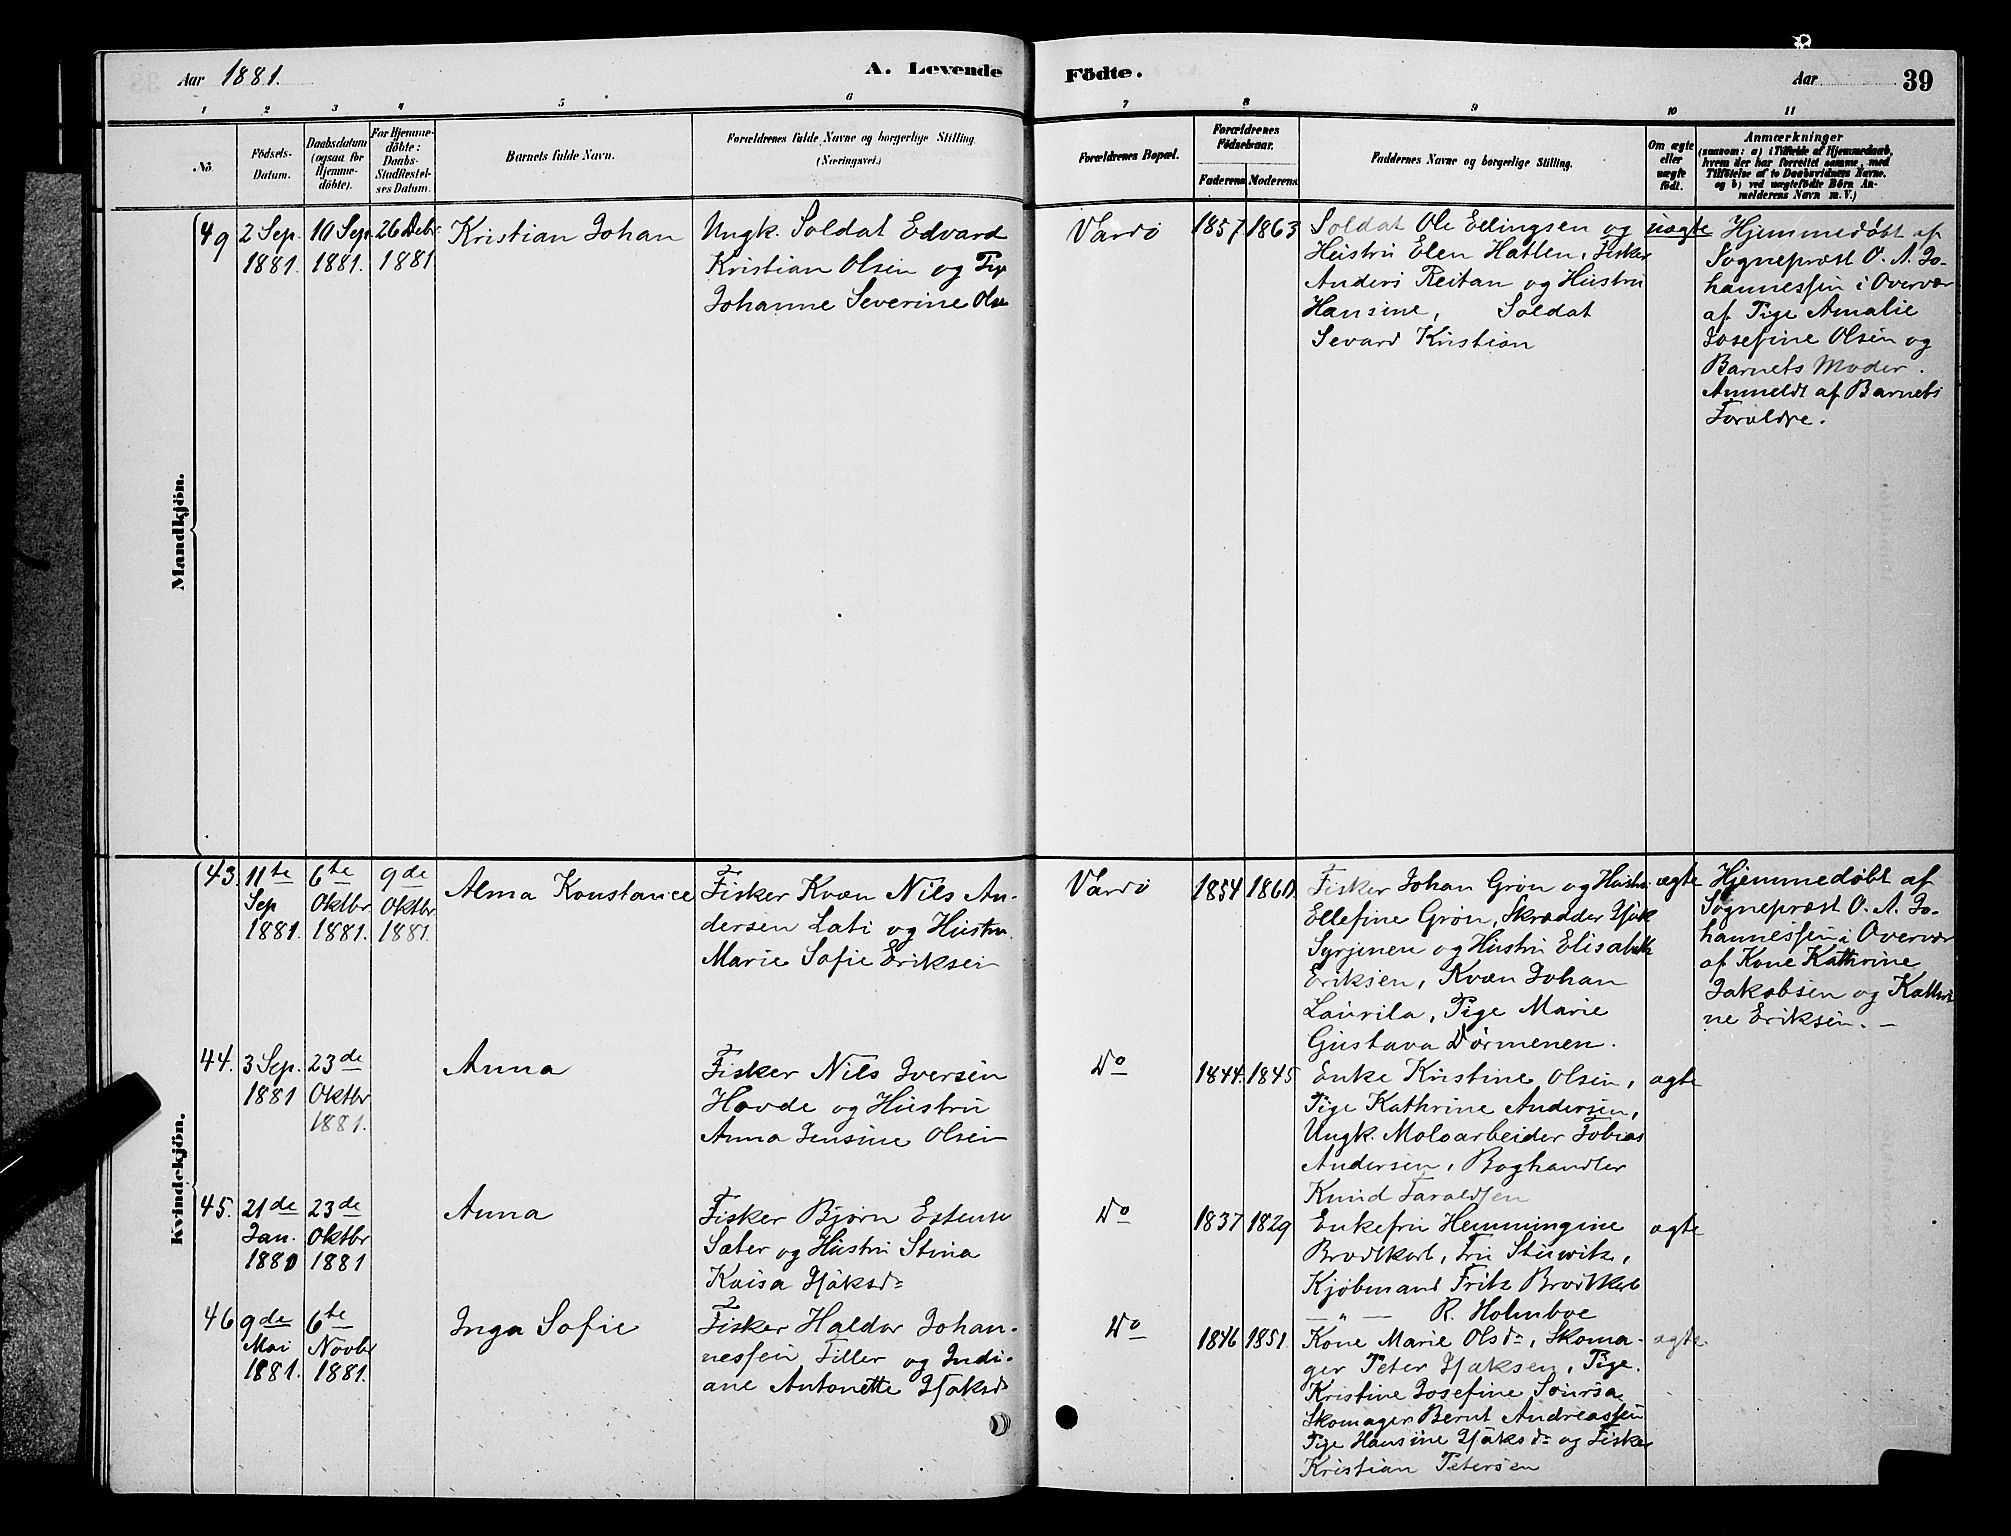 Aar 1881.
A. Levende
Födte.
Aar
39
1 2 3 4 5 6 7 8 9 10 11
No
Födsels-
Datum.
Daabsdatum
(ogsaa for
Hjemme-
döbte).
For Hjemme-
döbte:
Daabs-
Stadfæstel-
ses Datum.
Barnets fulde Navn.
Forældrenes fulde Navne og borgerlige Stilling
(Næringsvei.)
Forældrenes Bopæl.
Forældrenes
Födselsaar.
Faderens Moderens
Faddernes Navne og borgerlige Stilling.
Om ægte
eller
uægte
födt.
Anmærkninger
(saasom: a) i Tilfælde af Hjemmedaab,
hvem der har forrettet samme, med
Tilföielse af to Daabsvidners Navne,
og b) ved uægtefödte Börn An-
melderens Navn m. V.)
Mandkjön.
49
2 Sep.
1881.
10 Sep.
1881.
26 Debr
1881
Kristian Johan
Ungk. Soldat Edvard
Kristian Olsen og Pige
Johanne Severine Olsen
Vardö
1857 1863
Soldat Ole Ellingsen og
Hustru Elen Hatlen, Fisker
Anders Reitan og Hustru
Hansine, Soldat
Sevard Kristian
uægte
Hjemmedøbt af
Sognepræst O. A. Jo-
hannessen i Overvær
af Pige Amalie
Josefine Olsen og
Barnets Moder.
Anmeldt af Barnets
Forældre.
Kvindekjön.
43.
11te
Sep
1881.
6te
Oktbr
1881.
9de
Oktbr
1881.
Alma Konstance
Fisker Kvæn Nils An-
dersen Lati og Hustru
Marie Sofie Eriksen
Vardö
1854 1860.
Fisker Johan Grøn og Hustru
Ellefine Grøn, Skrædder Isak
Syrjenen og Hustru Elisabeth
Eriksen, Kvæn Johan
Laurila, Pige Marie
Gustava Dörmenen.
ægte
Hjemmedøbt af
Sognepræst O. A. Jo-
hannessen i Overvær
af Kone Kathrine
Jakobsen og Kathri
ne Eriksen. —
44.
3 Sep.
1881
23de
Oktbr
1881.
Anna
Fisker Nils Iversen
Hovde og Hustru
Anna Jensine Olsen
Do
1844. 1845
Enke Kristine Olsen,
Pige Kathrine Andersen,
Ungk. Moloarbeider Tobias
Andersen, Boghandler
Knud Taraldsen
ægte
45.
21de
Jan.
1880
23de
Oktbr
1881
Anna
Fisker Bjørn Estense
Sæter og Hustru Stina
Kaisa Isaksd=
Do
1837 1829
Enkefru Hemmingine
Brodtkorb, Fru Sturvitz,
Kjøbmand Fritz Brodtkorb
— " — R. Holmboe
ægte
46
9de
Mai
1881.
6te
Novbr
1881.
Inga Sofie
Fisker Haldor Johan-
nessen Tiller og Indi-
ane Antonette Isaksd=
Do
1846 1851.
Kone Marie Olsd=, Skoma-
ger Peter Isaksen, Pige
Kristine Josefine Soursa
Skomager Bernt Andreassen
Pige Hansine Isaksd= og Fisker
Kristian Petersen
ægte.